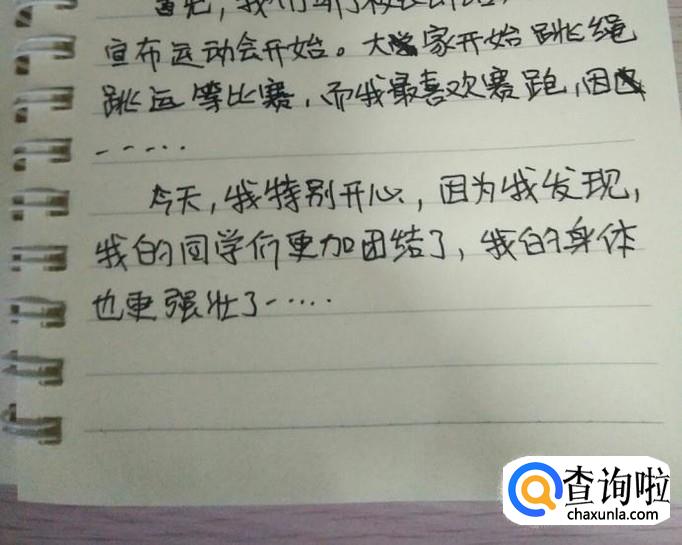 首先,我们
宣布运动会开始。大家开始跳绳
跳远等比赛,而我最喜欢赛跑,因
......
今天,我特别开心,因为我发现,
我的同学们更加团结了,我的身体
也更强壮了......
查询啦
chaxunla.com